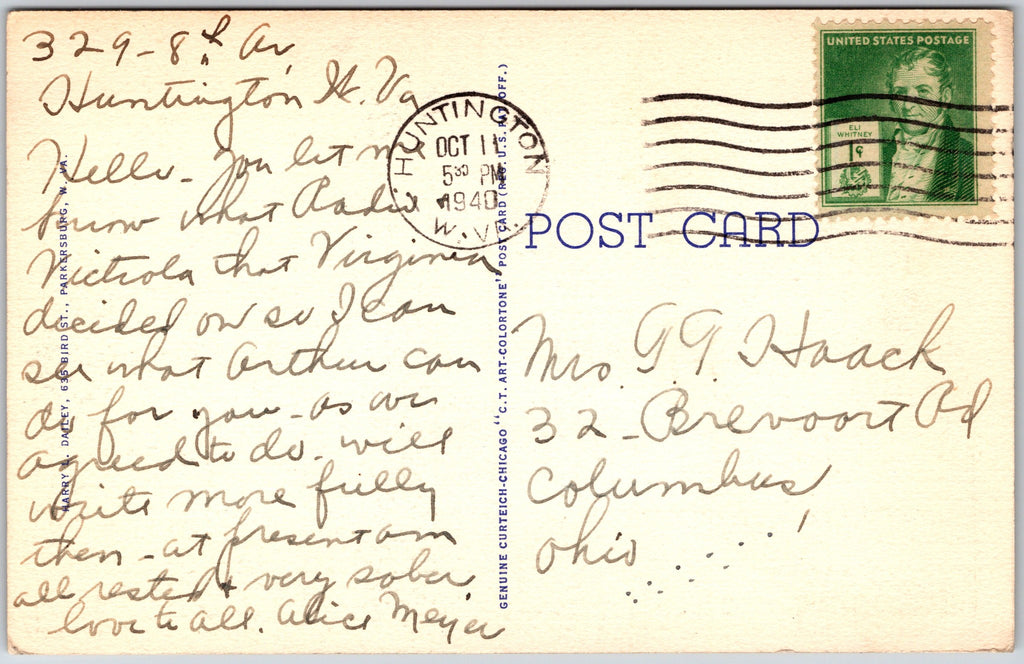 329 - 8th Av,
Huntington W. Va
Hello - you let me
know what Radio
Victrola that Virginia
decided on so I can
see what Arthur can
do for you - as we
agreed to do. will
write more fully
then - at present am
all rested & very sober
love to all. Alice Meyer
HARRY DAILEY, 635 BIRD ST., PARKERSBURG, W. VA.
GENUINE CURTEICH-CHICAGO "C.T. ART-COLORTONE" POST CARD (REG. U.S. PAT. OFF.)
HUNTINGTON
OCT 11
5 30 PM
1940
W. VA.
UNITED STATES POSTAGE
ELI
WHITNEY
1¢
POST CARD
Mrs. G G Haack
32 - Brevoort Rd
Columbus
Ohio